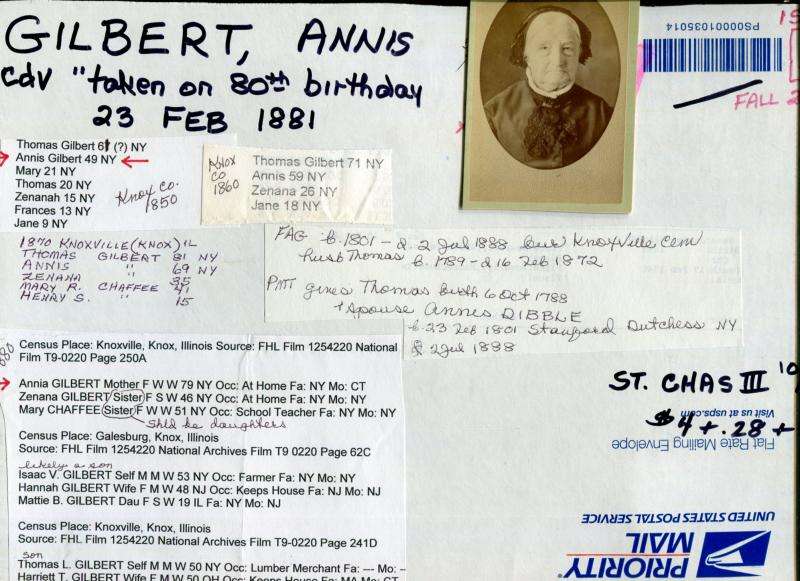 GILBERT, ANNIS
cdv "taken on 80th birthday
23 FEB 1881
PS00001035014
FALL 2
Thomas Gilbert 61 (?) NY
Annis Gilbert 49 NY
Mary 21 NY
Thomas 20 NY
Zenanah 15 NY
Frances 13 NY
Jane 9 NY
Knox co.
1850
Knox
co
1860
Thomas Gilbert 71 NY
Annis 59 NY
Zenana 26 NY
Jane 18 NY
1870 KNOXVILLE (KNOX) IL
THOMAS GILBERT 81 NY
ANNIS " 69 NY
ZENANA 35
MARY R. CHAFFEE 41
HENRY S. " 15
FAG b. 1801 - d. 2 Jul 1888 bur Knoxville Cem
husb Thomas b. 1789 - d 16 Feb 1872
PMT gives Thomas birth 6 Oct 1788
+ spouse Annis DIBBLE
b 23 Feb 1801 Stanford Dutchess NY
d 2 Jul 1888
880
Census Place: Knoxville, Knox, Illinois Source: FHL Film 1254220 National
Film T9-0220 Page 250A
Annia GILBERT Mother F W W 79 NY Occ: At Home Fa: NY Mo: CT
Zenana GILBERT Sister F S W 46 NY Occ: At Home Fa: NY Mo: NY
Mary CHAFFEE Sister F W W 51 NY Occ: School Teacher Fa: NY Mo: NY
shld be daughters
Census Place: Galesburg, Knox, Illinois
Source: FHL Film 1254220 National Archives Film T9 0220 Page 62C
likely a son
Isaac V. GILBERT Self M M W 53 NY Occ: Farmer Fa: NY Mo: NY
Hannah GILBERT Wife F M W 48 NJ Occ: Keeps House Fa: NJ Mo: NJ
Mattie B. GILBERT Dau F S W 19 IL Fa: NY Mo: NJ
Census Place: Knoxville, Knox, Illinois
Source: FHL Film 1254220 National Archives Film T9-0220 Page 241D
son
Thomas L. GILBERT Self M M W 50 NY Occ: Lumber Merchant Fa: --- Mo: -
Harriett T. GILBERT Wife F M W 50 OH Occ: Keeps House Fa: MA Mo: CT
ST. CHAS III '10
$4 + .28 +
Visit us at usps.com
Flat Rate Mailing Envelope
UNITED STATES POSTAL SERVICE
PRIORITY
MAIL